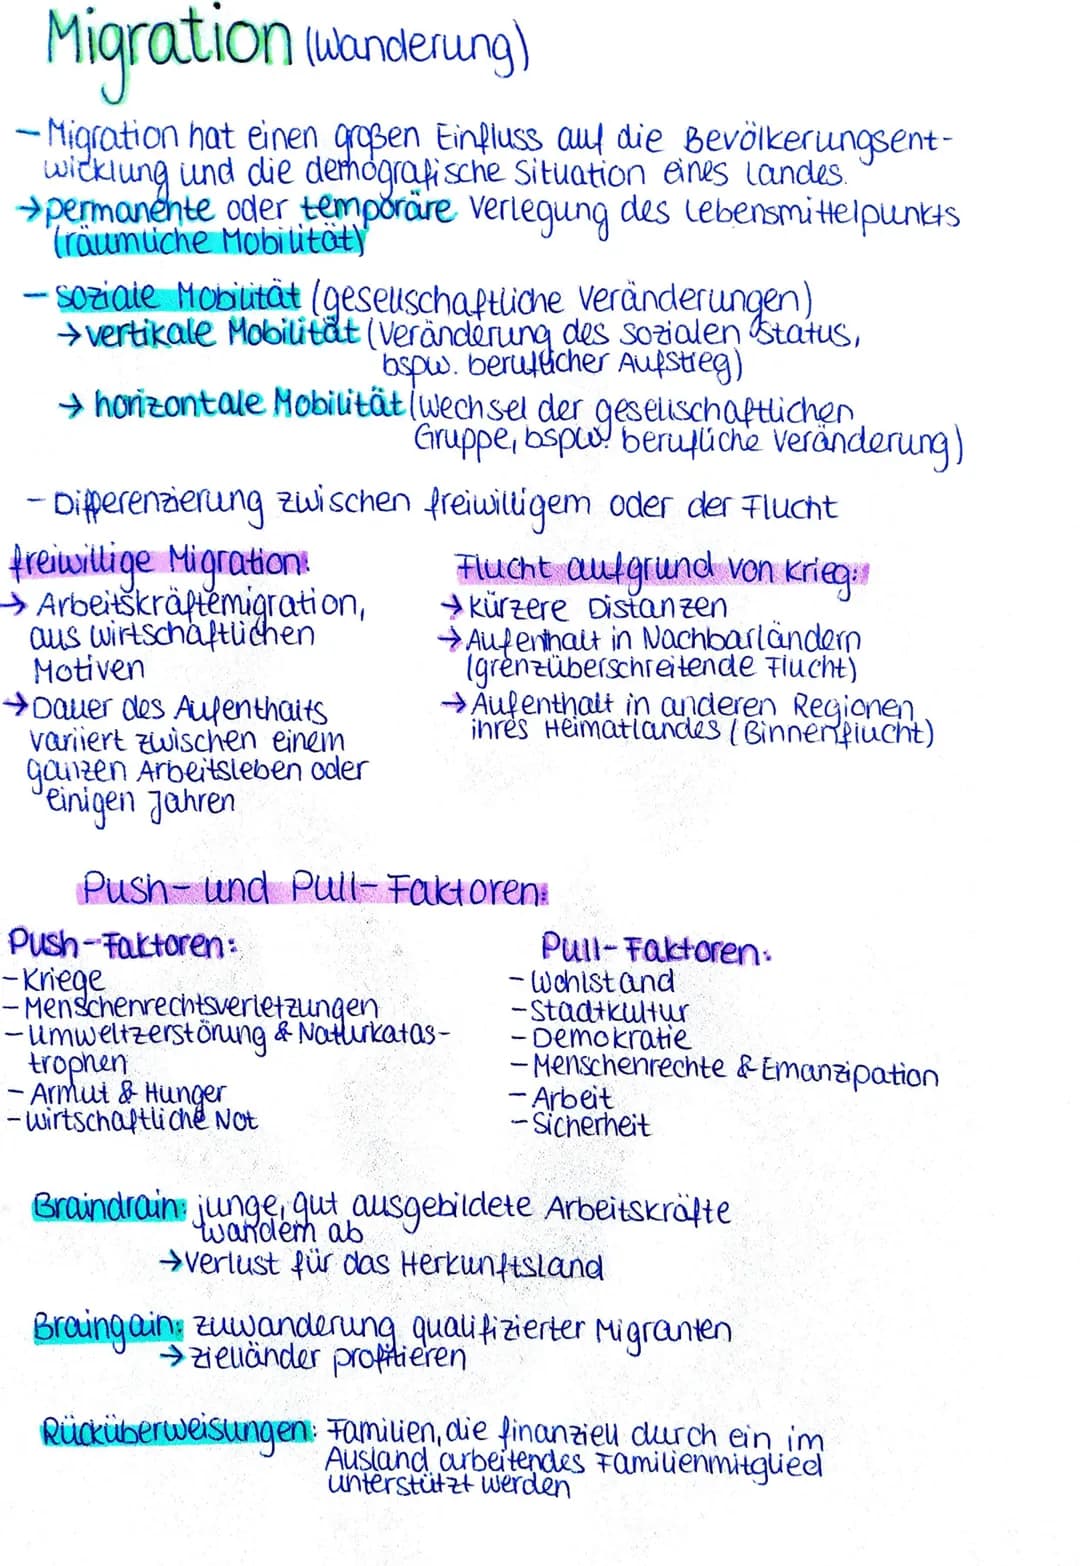 Migration (Wanderung)
- Migration hat einen großen Einfluss auf die Bevölkerungsent-
wicklung und die demografische Situation eines Landes.
→ permanente oder temporäre Verlegung des Lebensmittelpunkts
(räumliche Mobilität)
- soziale Mobilität (gesellschaftliche Veränderungen)
→ vertikale Mobilität (Veränderung des sozialen Status,
bspw. beruflicher Aufstieg)
→ horizontale Mobilität (Wechsel der gesellschaftlichen
Gruppe, bspw. berufliche Veränderung)
- Differenzierung zwischen freiwilligem oder der Flucht
freiwillige Migration:
→ Arbeitskräftemigration,
aus wirtschaftlichen
Motiven
→ Dauer des Aufenthalts
variiert zwischen einem
ganzen Arbeitsleben oder
einigen Jahren
Flucht aufgrund von Krieg:
→ kürzere Distanzen
→ Aufenthalt in Nachbarländern
(grenzüberschreitende Flucht)
→ Aufenthalt in anderen Regionen
ihres Heimatlandes (Binnenflucht)
Push- und Pull-Faktoren:
Push-Faktoren:
- Kriege
- Menschenrechtsverletzungen
- Umweltzerstörung & Naturkatas-
trophen
- Armut & Hunger
- wirtschaftliche Not
Pull-Faktoren:
- Wohlstand
- Stadtkultur
- Demokratie
- Menschenrechte & Emanzipation
- Arbeit
- Sicherheit
Braindrain: junge, gut ausgebildete Arbeitskräfte
wandern ab
→ Verlust für das Herkunftsland
Braingain: Zuwanderung qualifizierter Migranten
→ Zielländer profitieren
Rücküberweisungen: Familien, die finanziell durch ein im
Ausland arbeitendes Familienmitglied
unterstützt werden